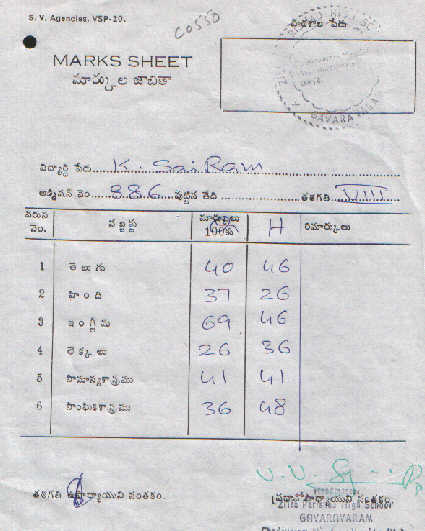 S. V. Agencies, VSP-20.
C0550
పాఠశాల పేరు
MARKS SHEET
మార్కుల జాబితా
GAVARA
విద్యార్థి పేరు K. Sai Ram
అడ్మిషన్ నెం. 886 పుట్టిన తేది తరగతి VIII
వరుస నెం. సబ్జెక్టు మార్కులు 100కు H రిమార్కులు
1 తెలుగు 40 46
2 హింది 37 26
3 ఇంగ్లీషు 69 46
4 లెక్కలు 26 36
5 సామాన్యశాస్త్రము 41 41
6 సాంఘికశాస్త్రము 36 48
తరగతి ఉపాధ్యాయుని సంతకం. ప్రధానోపాధ్యాయుని సంతకం.
Zilla Parishad High School
GOVARAVARAM